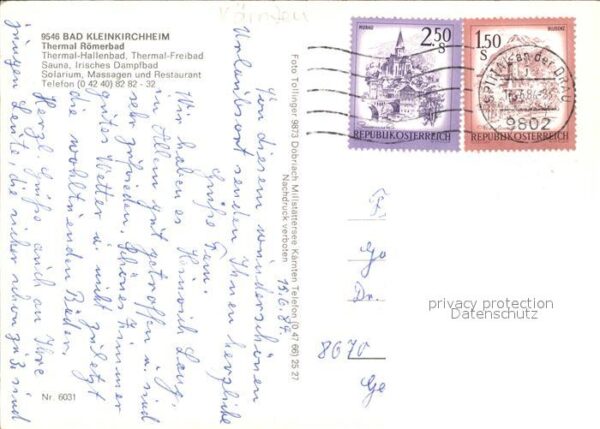 Kärnten
9546 BAD KLEINKIRCHHEIM
Thermal Römerbad
Thermal-Hallenbad, Thermal-Freibad
Sauna, Irisches Dampfbad
Solarium, Massagen und Restaurant
Telefon (0 42 40) 82 82 - 32
2.50
S
REPUBLIK ÖSTERREICH
1.50
S
RUST
REPUBLIK ÖSTERREICH
SPITTAL an der DRAU
9802
Foto Tollinger 9873 Döbriach Millstättersee Kärnten Telefon (0 47 66) 25 27
Nachdruck verboten
13.6.84.
Von diesem wunderschönen
Urlaubsort senden Ihnen herzliche
Grüße Fam.
Wir haben es
in Allem gut getroffen u. sind
sehr zufrieden. Schönes Zimmer
gutes Wetter u. nicht zuletzt
die wohltuenden Bäder.
Herzl. Grüße auch an Ihre
jungen Leute, die sicher schon zu Hs sind
Dr.
8670
privacy protection
Datenschutz
Nr. 6031